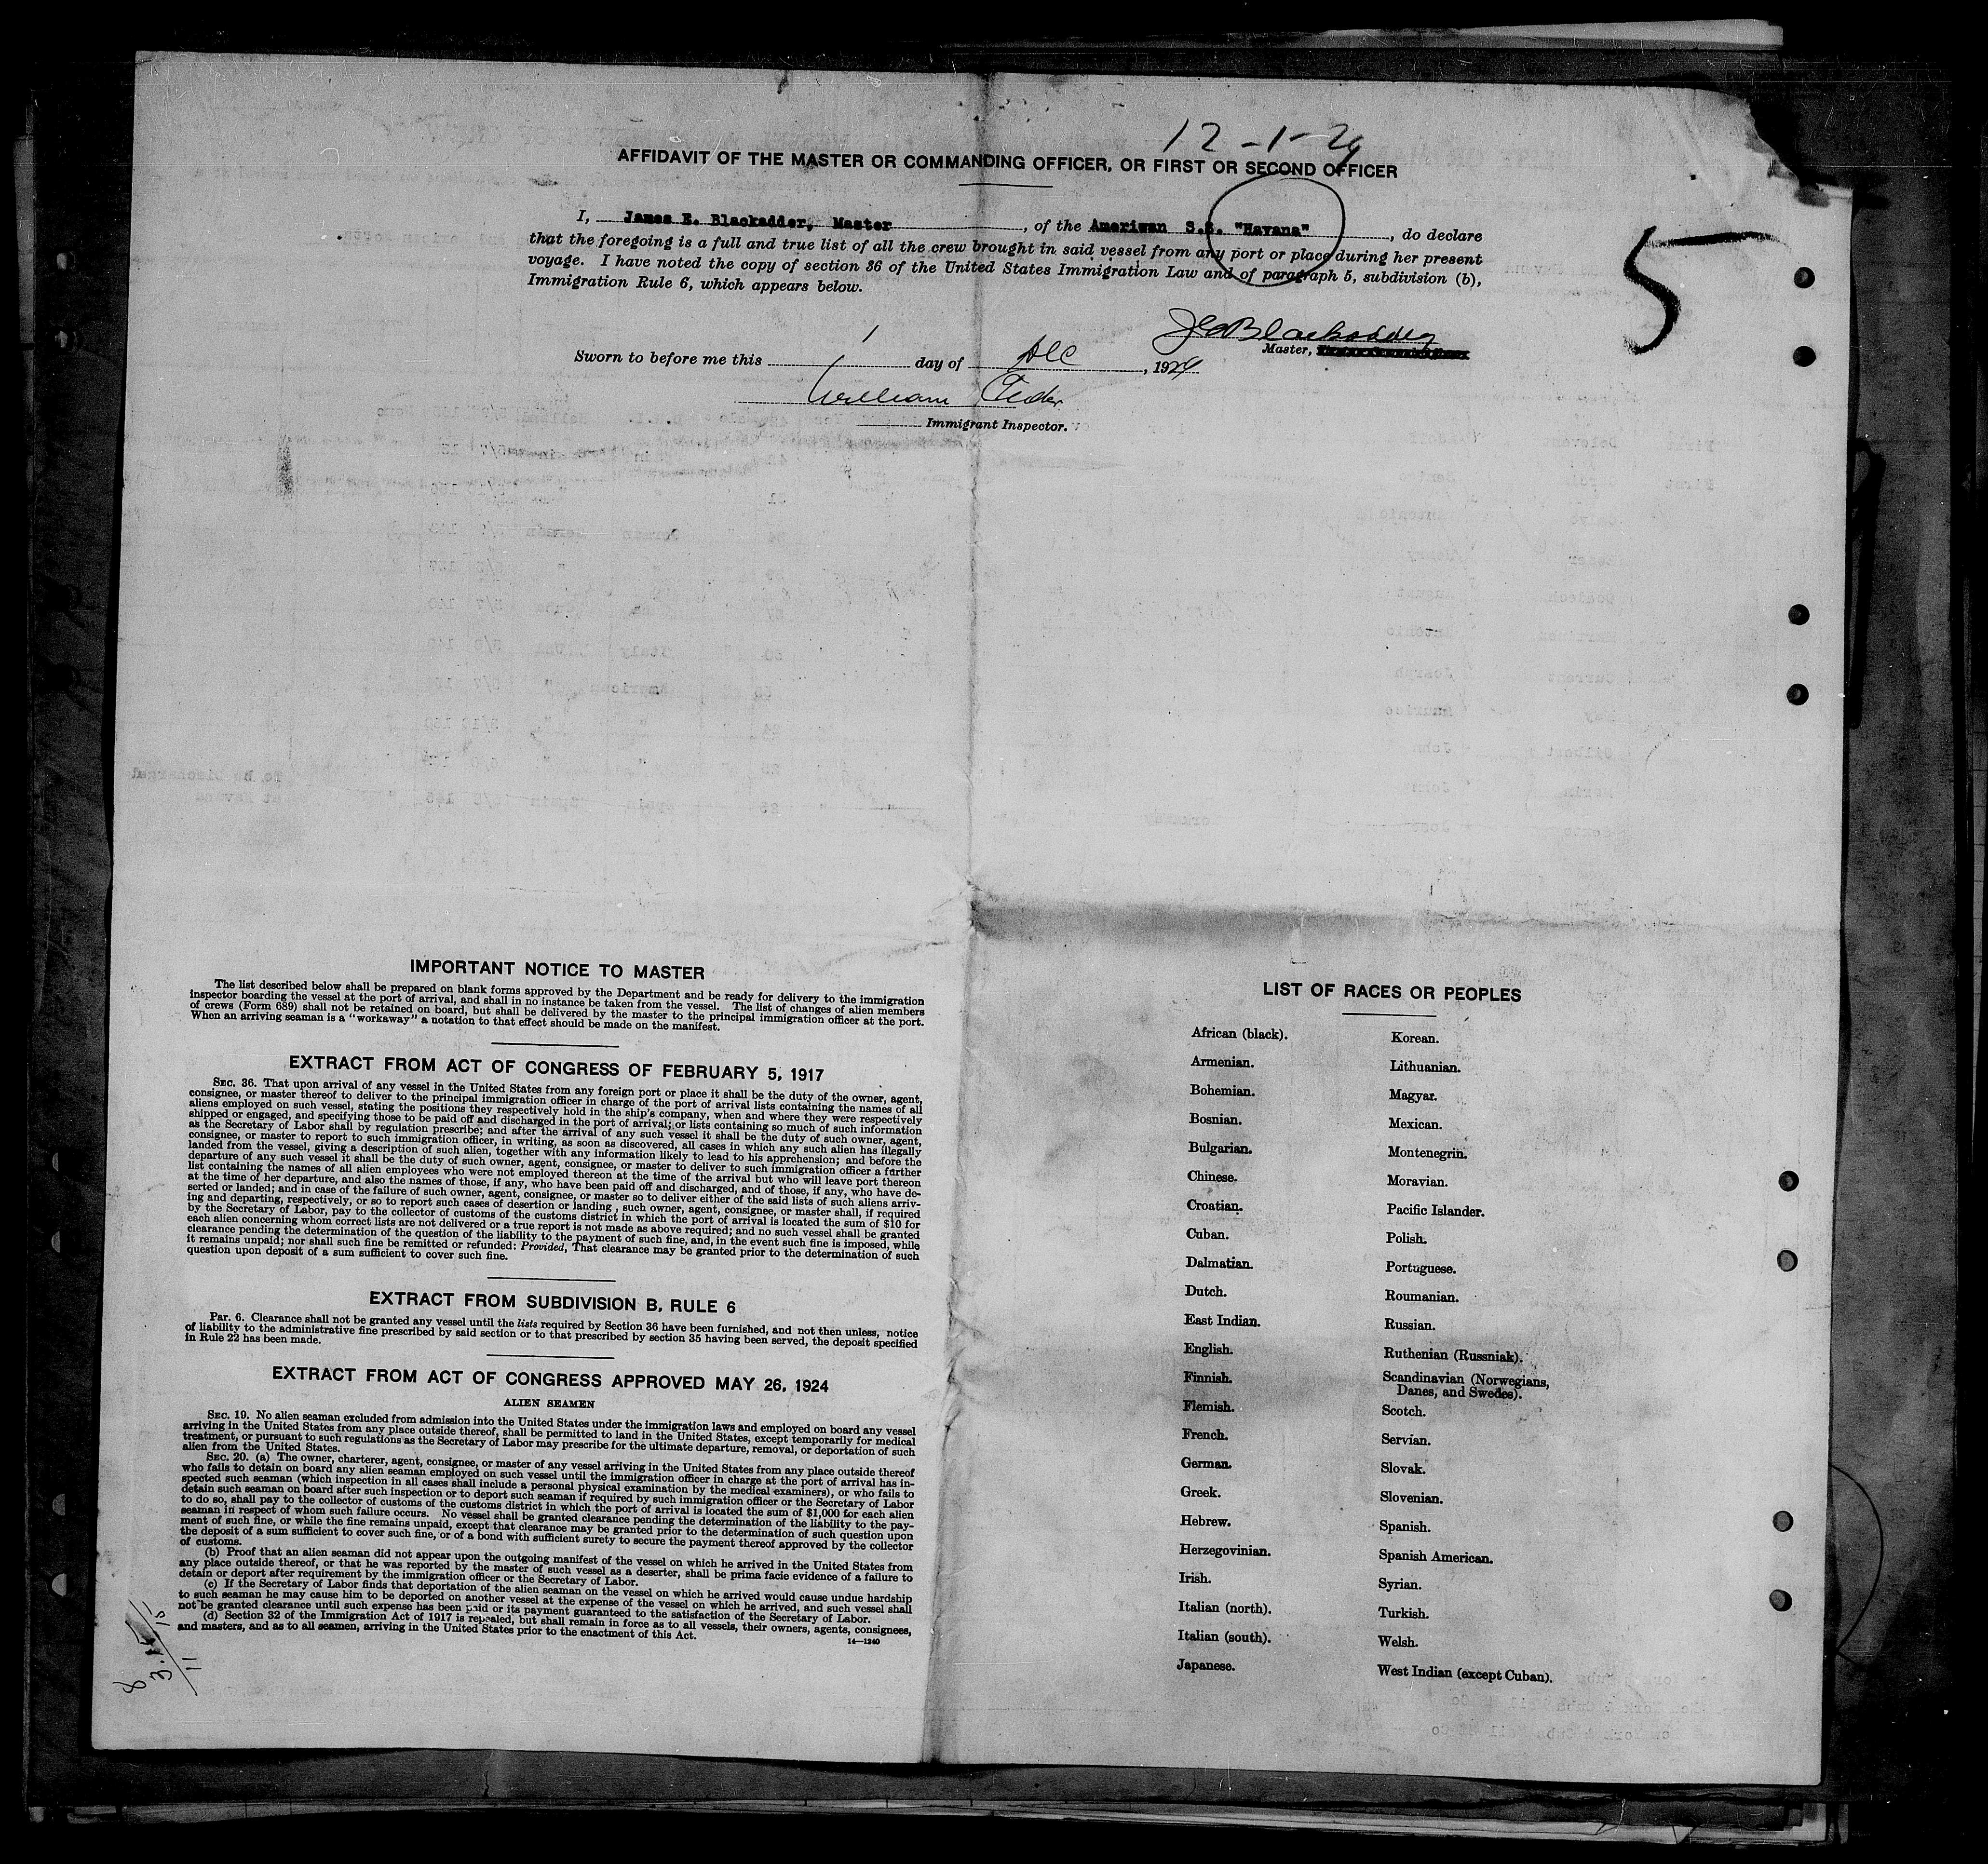 12-1-24
AFFIDAVIT OF THE MASTER OR COMMANDING OFFICER, OR FIRST OR SECOND OFFICER
I, James E. Blackadder, Master, of the Ameriwan S.S. "Havana", do declare
that the foregoing is a full and true list of all the crew brought in said vessel from any port or place during her present
voyage. I have noted the copy of section 36 of the United States Immigration Law and of paragraph 5, subdivision (b),
Immigration Rule 6, which appears below.
5
JEBlackadder
Master,
Sworn to before me this 1 day of Dec, 1924
William
Immigrant Inspector.
IMPORTANT NOTICE TO MASTER
The list described below shall be prepared on blank forms approved by the Department and be ready for delivery to the immigration
inspector boarding the vessel at the port of arrival, and shall in no instance be taken from the vessel. The list of changes of alien members
of crews (Form 689) shall not be retained on board, but shall be delivered by the master to the principal immigration officer at the port.
When an arriving seaman is a "workaway" a notation to that effect should be made on the manifest.
EXTRACT FROM ACT OF CONGRESS OF FEBRUARY 5, 1917
SEC. 36. That upon arrival of any vessel in the United States from any foreign port or place it shall be the duty of the owner, agent,
consignee, or master thereof to deliver to the principal immigration officer in charge of the port of arrival lists containing the names of all
aliens employed on such vessel, stating the positions they respectively hold in the ship's company, when and where they were respectively
shipped or engaged, and specifying those to be paid off and discharged in the port of arrival; or lists containing so much of such information
as the Secretary of Labor shall by regulation prescribe; and after the arrival of any such vessel it shall be the duty of such owner, agent,
consignee, or master to report to such immigration officer, in writing, as soon as discovered, all cases in which any such alien has illegally
landed from the vessel, giving a description of such alien, together with any information likely to lead to his apprehension; and before the
departure of any such vessel it shall be the duty of such owner, agent, consignee, or master to deliver to such immigration officer a further
list containing the names of all alien employees who were not employed thereon at the time of the arrival but who will leave port thereon
at the time of her departure, and also the names of those, if any, who have been paid off and discharged, and of those, if any, who have de-
serted or landed; and in case of the failure of such owner, agent, consignee, or master so to deliver either of the said lists of such aliens arriv-
ing and departing, respectively, or so to report such cases of desertion or landing , such owner, agent, consignee, or master shall, if required
by the Secretary of Labor, pay to the collector of customs of the customs district in which the port of arrival is located the sum of $10 for
each alien concerning whom correct lists are not delivered or a true report is not made as above required; and no such vessel shall be granted
clearance pending the determination of the question of the liability to the payment of such fine, and, in the event such fine is imposed, while
it remains unpaid; nor shall such fine be remitted or refunded: Provided, That clearance may be granted prior to the determination of such
question upon deposit of a sum sufficient to cover such fine.
EXTRACT FROM SUBDIVISION B, RULE 6
Par. 6. Clearance shall not be granted any vessel until the lists required by Section 36 have been furnished, and not then unless, notice
of liability to the administrative fine prescribed by said section or to that prescribed by section 35 having been served, the deposit specified
in Rule 22 has been made.
EXTRACT FROM ACT OF CONGRESS APPROVED MAY 26, 1924
ALIEN SEAMEN
SEC. 19. No alien seaman excluded from admission into the United States under the immigration laws and employed on board any vessel
arriving in the United States from any place outside thereof, shall be permitted to land in the United States, except temporarily for medical
treatment, or pursuant to such regulations as the Secretary of Labor may prescribe for the ultimate departure, removal, or deportation of such
alien from the United States.
SEC. 20. (a) The owner, charterer, agent, consignee, or master of any vessel arriving in the United States from any place outside thereof
who fails to detain on board any alien seaman employed on such vessel until the immigration officer in charge at the port of arrival has in-
spected such seaman (which inspection in all cases shall include a personal physical examination by the medical examiners), or who fails to
detain such seaman on board after such inspection or to deport such seaman if required by such immigration officer or the Secretary of Labor
to do so, shall pay to the collector of customs of the customs district in which the port of arrival is located the sum of $1,000 for each alien
seaman in respect of whom such failure occurs. No vessel shall be granted clearance pending the determination of the liability to the pay-
ment of such fine, or while the fine remains unpaid, except that clearance may be granted prior to the determination of such question upon
the deposit of a sum sufficient to cover such fine, or of a bond with sufficient surety to secure the payment thereof approved by the collector
of customs.
(b) Proof that an alien seaman did not appear upon the outgoing manifest of the vessel on which he arrived in the United States from
any place outside thereof, or that he was reported by the master of such vessel as a deserter, shall be prima facie evidence of a failure to
detain or deport after requirement by the immigration officer or the Secretary of Labor.
(c) If the Secretary of Labor finds that deportation of the alien seaman on the vessel on which he arrived would cause undue hardship
to such seaman he may cause him to be deported on another vessel at the expense of the vessel on which he arrived, and such vessel shall
not be granted clearance until such expense has been paid or its payment guaranteed to the satisfaction of the Secretary of Labor.
(d) Section 32 of the Immigration Act of 1917 is repealed, but shall remain in force as to all vessels, their owners, agents, consignees,
and masters, and as to all seamen, arriving in the United States prior to the enactment of this Act.
14—1240
LIST OF RACES OR PEOPLES
African (black).
Armenian.
Bohemian.
Bosnian.
Bulgarian.
Chinese.
Croatian.
Cuban.
Dalmatian.
Dutch.
East Indian.
English.
Finnish.
Flemish.
French.
German.
Greek.
Hebrew.
Herzegovinian.
Irish.
Italian (north).
Italian (south).
Japanese.
Korean.
Lithuanian.
Magyar.
Mexican.
Montenegrin.
Moravian.
Pacific Islander.
Polish.
Portuguese.
Roumanian.
Russian.
Ruthenian (Russniak).
Scandinavian (Norwegians,
Danes, and Swedes).
Scotch.
Servian.
Slovak.
Slovenian.
Spanish.
Spanish American.
Syrian.
Turkish.
Welsh.
West Indian (except Cuban).